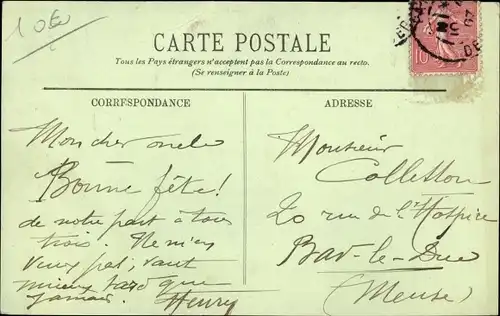 10€
CARTE POSTALE
Tous les Pays étrangers n'acceptent pas la Correspondance au recto.
(Se renseigner à la Poste)
CORRESPONDANCE
ADRESSE
Mon cher oncle
Bonne fête!
de notre part à tous
trois. Ne m'en
veux pas, vaut
mieux tard que
jamais. Henry
Monsieur
Colleston
20 rue de l'Hospice
Bar-le-Duc
(Meuse)
10